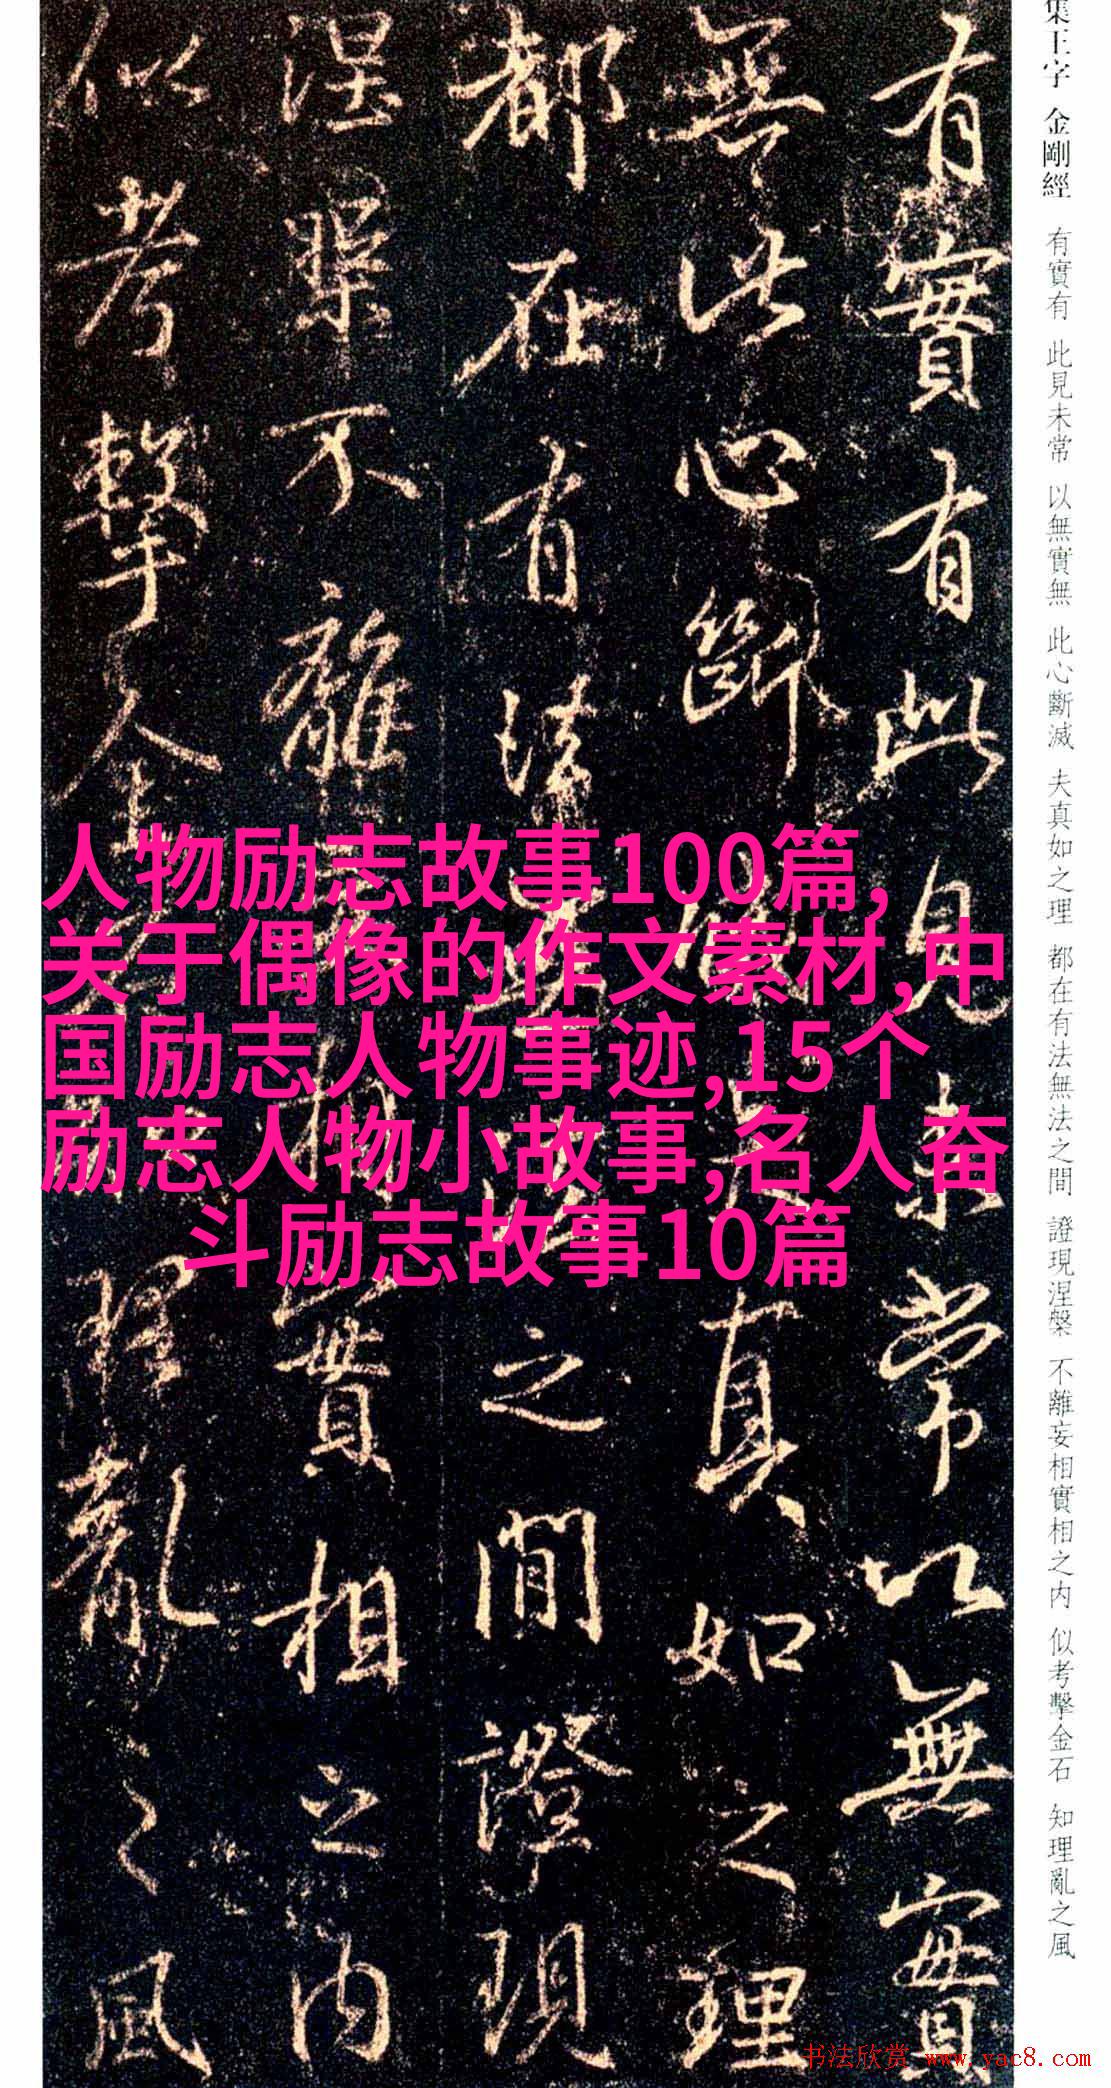 集王字 金剛經 有實有 此見未常 以無實無 此心斷滅 夫真如之理 都在有法無法之間 證現涅槃 不離妄相實相之内 似考擊金石 知理亂之風
有實有此見未常以無實
無此心斷滅夫真如之理
都在有法無法之間證現
涅槃不離妄相實相之内
似考擊金石知理亂之風
人物励志故事100篇,
关于偶像的作文素材,中
国励志人物事迹,15个
励志人物小故事,名人奋
斗励志故事10篇
书法欣赏 www.yac8.com